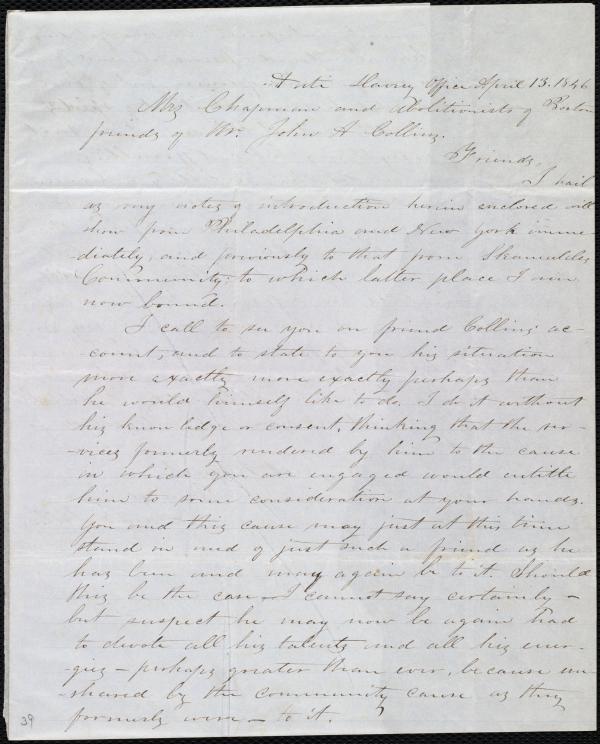 Anti Slavery Office April 13. 1846
Mrs Chapman and Abolitionists of Boston
friends of Mr. John A Collins.
Friends,
I hail
as my notes of introduction herin enclosed will
show from Philadelphia and New York imme-
diately, and previously to that from Skaneateles
Community: to which latter place I am
now bound.
I call to see you on friend Collins' ac-
count, and to state to you his situation
more exactly more exactly perhaps than
he would himself like to do. I do it without
his knowledge or consent, thinking that the ser-
-vices formerly rendered by him to the cause
in which you are engaged would entitle
him to some consideration at your hands.
You and this cause may just at this time
stand in need of just such a friend as he
has been and may again be to it. Should
this be the case - I cannot say certainly -
but suspect he may now be again had
to devote all his talents and all his ener-
-gies - perhaps greater than ever, because un-
-shared by the community cause as they
formerly were - to it.
39